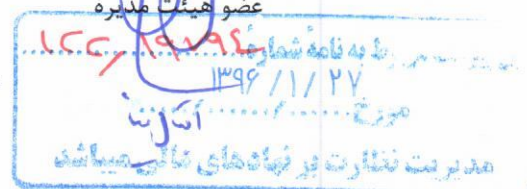 عضو هیئت مدیره
ط به نامه شماره ۱۲۲/۱۹۷۹۴
۱۳۹۶/۱/۲۷
مورخ
مدیریت نظارت بر نهادهای مالی میباشد